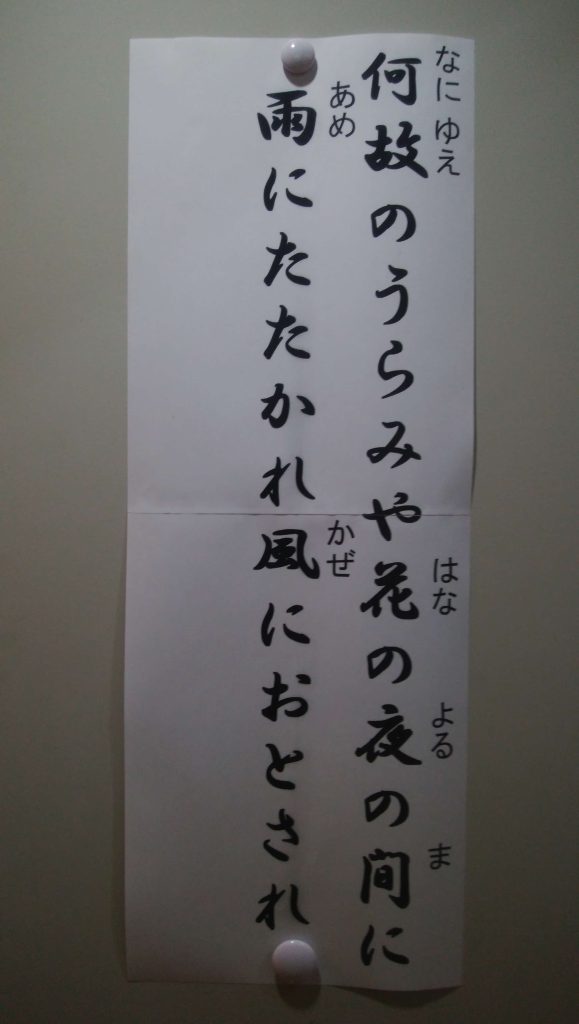 何故のうらみや花の夜の間に
なにゆえ はな よる ま
雨にたたかれ風におとされ
あめ かぜ